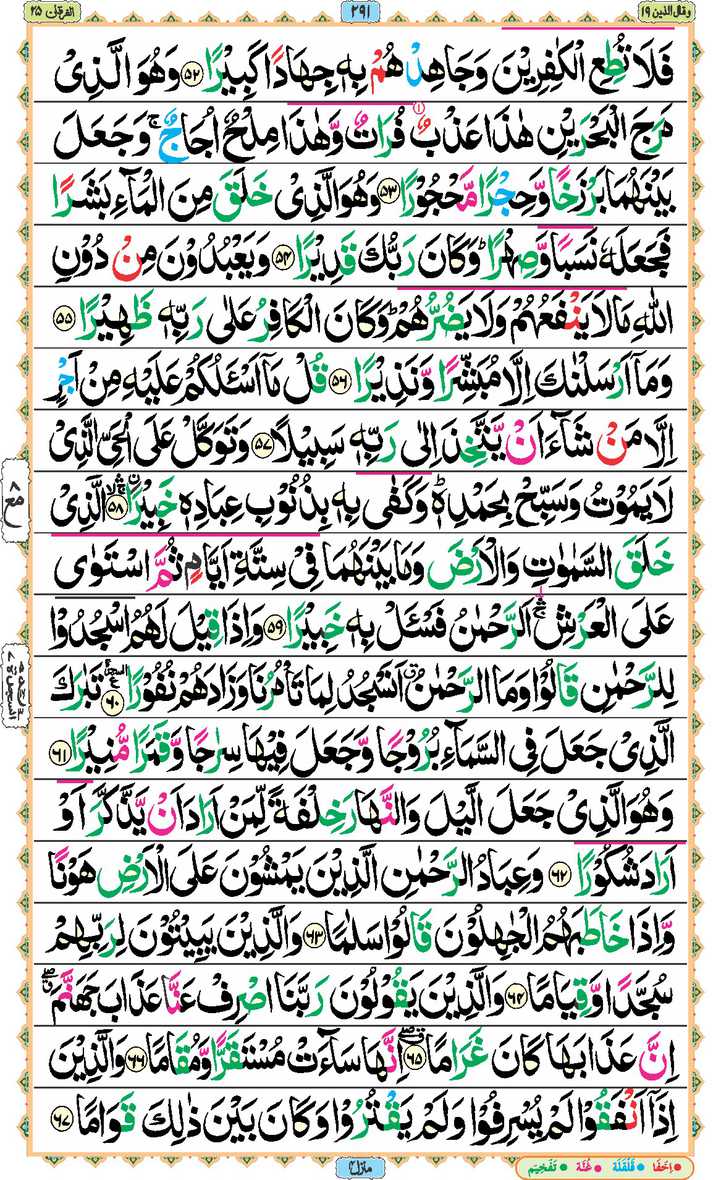 وقال الذین ۱۹
۲۹۱
الفرقان ۲۵
فَلَا تُطِعِ الْكٰفِرِیْنَ وَجَاهِدْهُمْ بِهٖ جِهَادًا كَبِیْرًا ﴿۵۲﴾ وَهُوَ الَّذِیْ
مَرَجَ الْبَحْرَیْنِ هٰذَا عَذْبٌ فُرَاتٌ وَّهٰذَا مِلْحٌ اُجَاجٌ ۚ وَجَعَلَ
بَیْنَهُمَا بَرْزَخًا وَّحِجْرًا مَّحْجُوْرًا ﴿۵۳﴾ وَهُوَ الَّذِیْ خَلَقَ مِنَ الْمَآءِ بَشَرًا
فَجَعَلَهٗ نَسَبًا وَّصِهْرًا ؕ وَكَانَ رَبُّكَ قَدِیْرًا ﴿۵۴﴾ وَیَعْبُدُوْنَ مِنْ دُوْنِ
اللّٰهِ مَا لَا یَنْفَعُهُمْ وَلَا یَضُرُّهُمْ ؕ وَكَانَ الْكَافِرُ عَلٰی رَبِّهٖ ظَهِیْرًا ﴿۵۵﴾
وَمَاۤ اَرْسَلْنٰكَ اِلَّا مُبَشِّرًا وَّنَذِیْرًا ﴿۵۶﴾ قُلْ مَاۤ اَسْـَٔلُكُمْ عَلَیْهِ مِنْ اَجْرٍ
اِلَّا مَنْ شَآءَ اَنْ یَّتَّخِذَ اِلٰی رَبِّهٖ سَبِیْلًا ﴿۵۷﴾ وَتَوَكَّلْ عَلَی الْحَیِّ الَّذِیْ
لَا یَمُوْتُ وَسَبِّحْ بِحَمْدِهٖ ؕ وَكَفٰی بِهٖ بِذُنُوْبِ عِبَادِهٖ خَبِیْرًا ﴿۵۸﴾ الَّذِیْ
خَلَقَ السَّمٰوٰتِ وَالْاَرْضَ وَمَا بَیْنَهُمَا فِیْ سِتَّةِ اَیَّامٍ ثُمَّ اسْتَوٰی
عَلَی الْعَرْشِ ۛۚ اَلرَّحْمٰنُ فَسْـَٔلْ بِهٖ خَبِیْرًا ﴿۵۹﴾ وَاِذَا قِیْلَ لَهُمُ اسْجُدُوْا
لِلرَّحْمٰنِ قَالُوْا وَمَا الرَّحْمٰنُ ۗ اَنَسْجُدُ لِمَا تَاْمُرُنَا وَزَادَهُمْ نُفُوْرًا ﴿۶۰﴾ تَبٰرَكَ
الَّذِیْ جَعَلَ فِی السَّمَآءِ بُرُوْجًا وَّجَعَلَ فِیْهَا سِرٰجًا وَّقَمَرًا مُّنِیْرًا ﴿۶۱﴾
وَهُوَ الَّذِیْ جَعَلَ الَّیْلَ وَالنَّهَارَ خِلْفَةً لِّمَنْ اَرَادَ اَنْ یَّذَّكَّرَ اَوْ
اَرَادَ شُكُوْرًا ﴿۶۲﴾ وَعِبَادُ الرَّحْمٰنِ الَّذِیْنَ یَمْشُوْنَ عَلَی الْاَرْضِ هَوْنًا
وَّاِذَا خَاطَبَهُمُ الْجٰهِلُوْنَ قَالُوْا سَلٰمًا ﴿۶۳﴾ وَالَّذِیْنَ یَبِیْتُوْنَ لِرَبِّهِمْ
سُجَّدًا وَّقِیَامًا ﴿۶۴﴾ وَالَّذِیْنَ یَقُوْلُوْنَ رَبَّنَا اصْرِفْ عَنَّا عَذَابَ جَهَنَّمَ ۖۗ
اِنَّ عَذَابَهَا كَانَ غَرَامًا ﴿۶۵﴾ اِنَّهَا سَآءَتْ مُسْتَقَرًّا وَّمُقَامًا ﴿۶۶﴾ وَالَّذِیْنَ
اِذَاۤ اَنْفَقُوْا لَمْ یُسْرِفُوْا وَلَمْ یَقْتُرُوْا وَكَانَ بَیْنَ ذٰلِكَ قَوَامًا ﴿۶۷﴾
منزل ۴
اِخْفَا قَلْقَلَه غُنَّه تَفْخِیْم